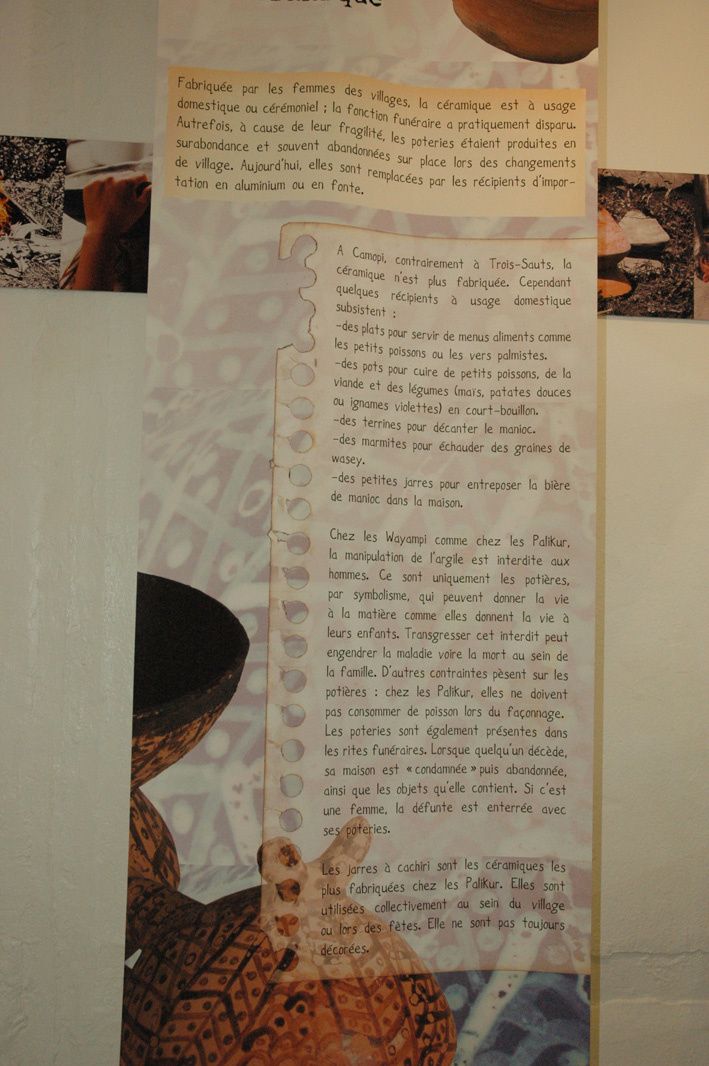 Fabriquée par les femmes des villages, la céramique est à usage
domestique ou cérémoniel ; la fonction funéraire a pratiquement disparu.
Autrefois, à cause de leur fragilité, les poteries étaient produites en
surabondance et souvent abandonnées sur place lors des changements
de village. Aujourd'hui, elles sont remplacées par les récipients d'impor-
tation en aluminium ou en fonte.
A Camopi, contrairement à Trois-Sauts, la
céramique n'est plus fabriquée. Cependant
quelques récipients à usage domestique
subsistent :
-des plats pour servir de menus aliments comme
les petits poissons ou les vers palmistes.
-des pots pour cuire de petits poissons, de la
viande et des légumes (maïs, patates douces
ou ignames violettes) en court-bouillon.
-des terrines pour décanter le manioc.
-des marmites pour échauder des graines de
wasey.
-des petites jarres pour entreposer la bière
de manioc dans la maison.
Chez les Wayampi comme chez les Palikur,
la manipulation de l'argile est interdite aux
hommes. Ce sont uniquement les potières,
par symbolisme, qui peuvent donner la vie
à la matière comme elles donnent la vie à
leurs enfants. Transgresser cet interdit peut
engendrer la maladie voire la mort au sein de
la famille. D'autres contraintes pèsent sur les
potières : chez les Palikur, elles ne doivent
pas consommer de poisson lors du façonnage.
Les poteries sont également présentes dans
les rites funéraires. Lorsque quelqu'un décède,
sa maison est « condamnée » puis abandonnée,
ainsi que les objets qu'elle contient. Si c'est
une femme, la défunte est enterrée avec
ses poteries.
Les jarres à cachiri sont les céramiques les
plus fabriquées chez les Palikur. Elles sont
utilisées collectivement au sein du village
ou lors des fêtes. Elle ne sont pas toujours
décorées.